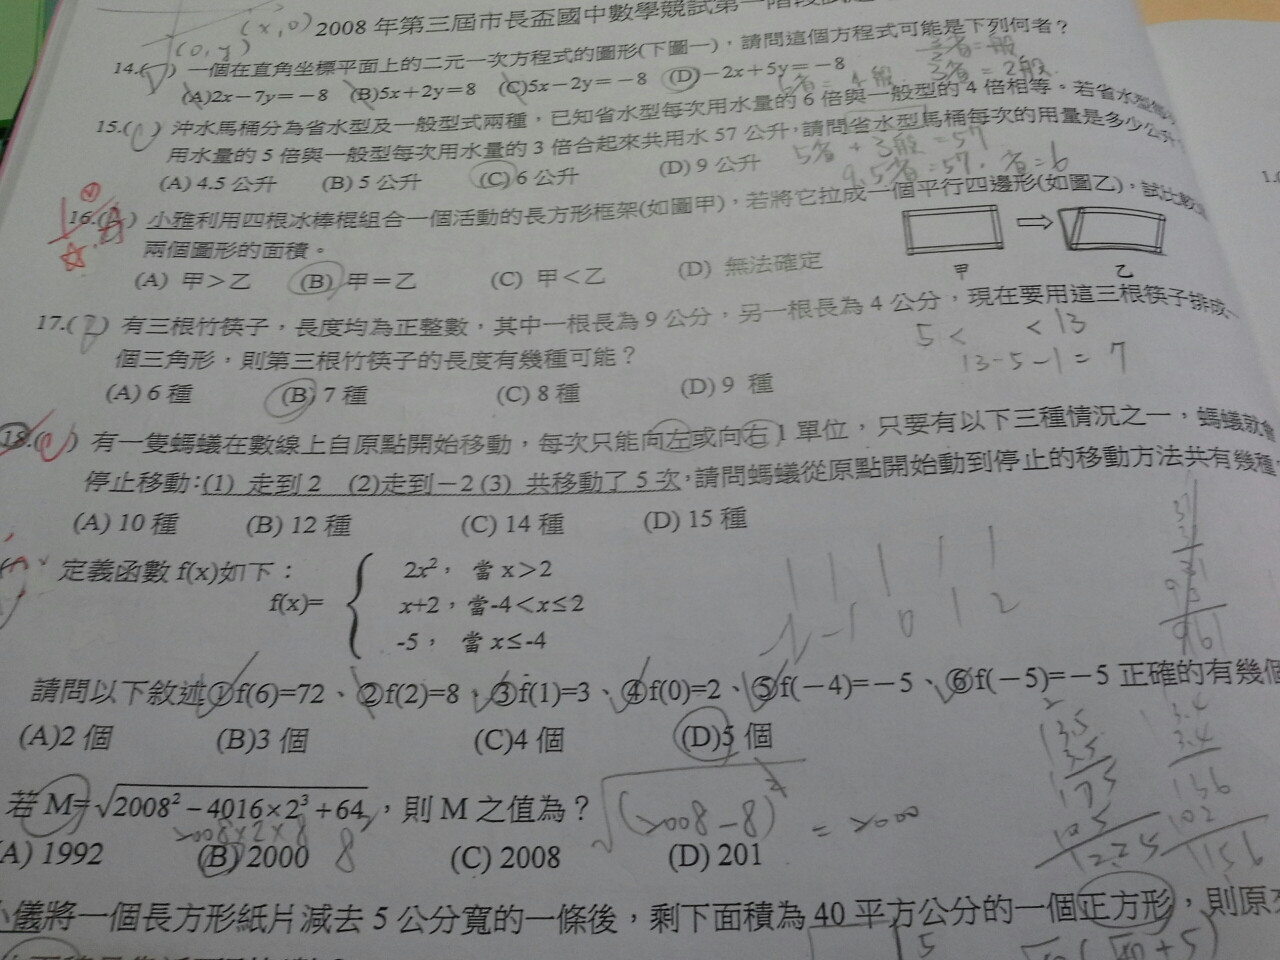 (x,0) 2008 年第三屆市長盃國中數學競試第一階段試
(0,y)
14.( ) 一個在直角坐標平面上的二元一次方程式的圖形(下圖一)，請問這個方程式可能是下列何者？
(A)2x－7y＝－8 (B)5x＋2y＝8 (C)5x－2y＝－8 (D)－2x＋5y＝－8
15.( ) 沖水馬桶分為省水型及一般型式兩種，已知省水型每次用水量的 6 倍與一般型的 4 倍相等。若省水型每
用水量的 5 倍與一般型每次用水量的 3 倍合起來共用水 57 公升，請問省水型馬桶每次的用量是多少公升
5省 + 3般 = 57
(A) 4.5 公升 (B) 5 公升 (C) 6 公升 (D) 9 公升
9.5省=57. 省=6
16.( ) 小雅利用四根冰棒棍組合一個活動的長方形框架(如圖甲)，若將它拉成一個平行四邊形(如圖乙)，試比較
兩個圖形的面積。
甲 乙
(A) 甲＞乙 (B) 甲＝乙 (C) 甲＜乙 (D) 無法確定
17.( ) 有三根竹筷子，長度均為正整數，其中一根長為 9 公分，另一根長為 4 公分，現在要用這三根筷子排成一
5 < < 13
個三角形，則第三根竹筷子的長度有幾種可能？
13-5-1 = 7
(A) 6 種 (B) 7 種 (C) 8 種 (D) 9 種
18.( ) 有一隻螞蟻在數線上自原點開始移動，每次只能向左或向右 1 單位，只要有以下三種情況之一，螞蟻就會
停止移動：(1) 走到 2 (2)走到－2 (3) 共移動了 5 次，請問螞蟻從原點開始動到停止的移動方法共有幾種
(A) 10 種 (B) 12 種 (C) 14 種 (D) 15 種
定義函數 f(x)如下：
f(x)=
2x²， 當 x>2
x+2，當-4<x≤2
-5， 當 x≤-4
-1 0 1 2
961
請問以下敘述①f(6)=72、②f(2)=8、③f(1)=3、④f(0)=2、⑤f(－4)=－5、⑥f(－5)=－5 正確的有幾個
(A)2 個 (B)3 個 (C)4 個 (D)5 個
3.5
3.5
175
105
1225
3.4
3.4
136
102
1156
若 M=√2008²－4016×2³＋64，則 M 之值為？
2008×2×8
8
√(2008-8)² = 2000
A) 1992 (B) 2000 (C) 2008 (D) 201
小儀將一個長方形紙片減去 5 公分寬的一條後，剩下面積為 40 平方公分的一個正方形，則原
5
√40(√40+5)